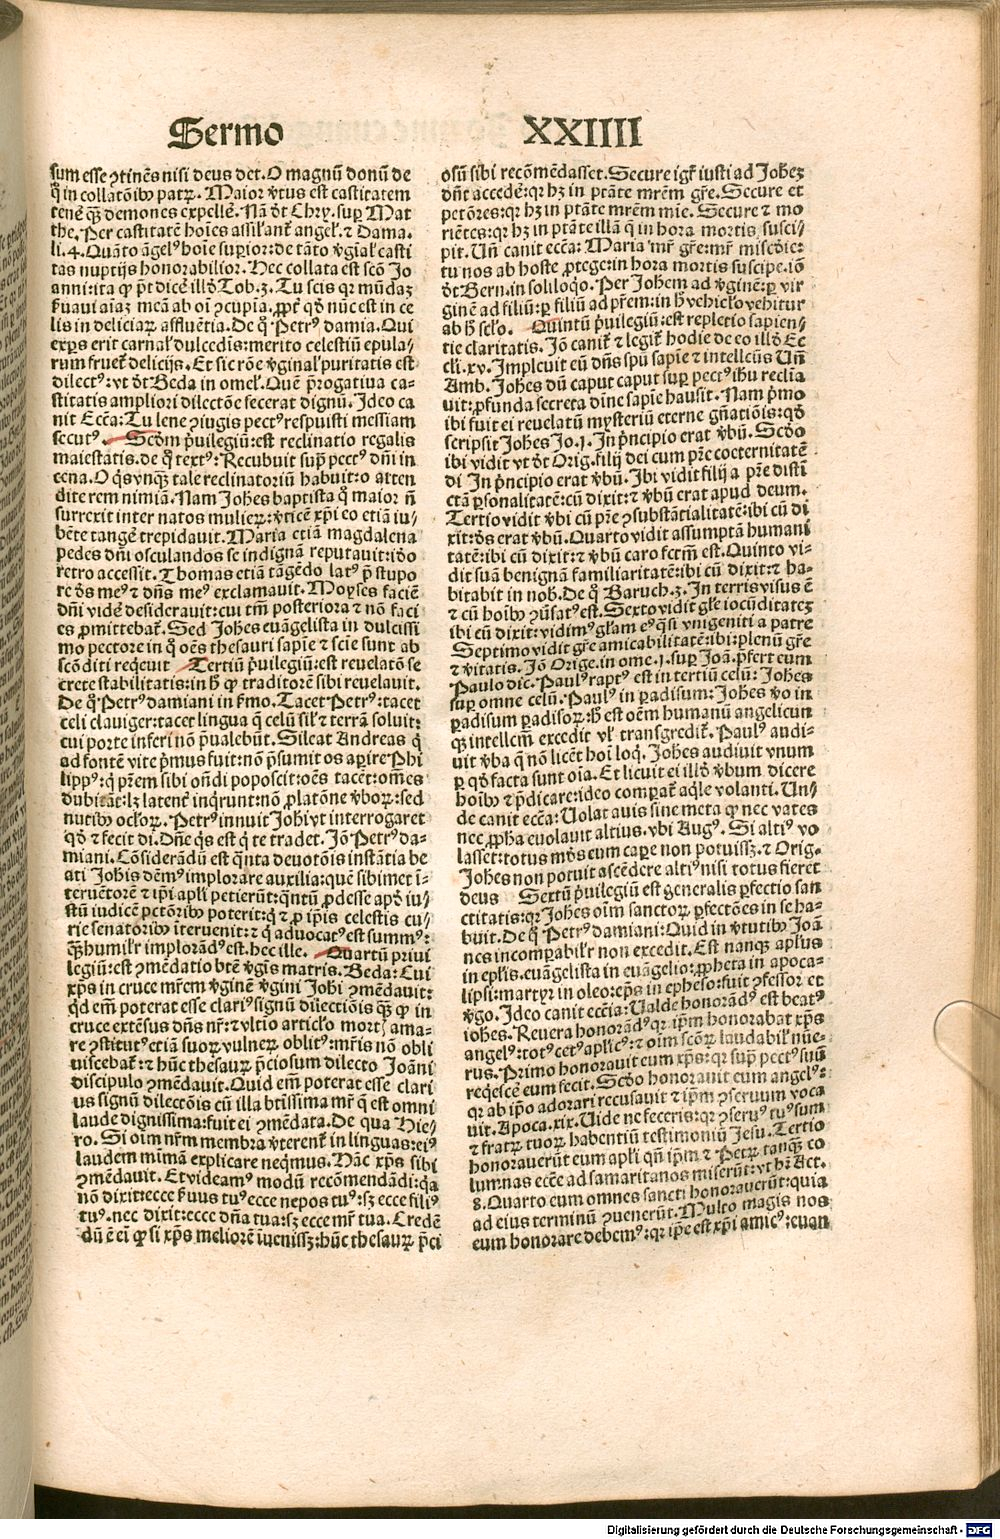 Sermo XXIIII
sum esse ɔtinēs nisi deus det. O magnū donū de
q̄ in collatōibꝰ patꝝ. Maior v̄tus est castitatem
tenē qꝫ demones expellē. Nā dt̄ Chry. sup Mat
the. Per castitatē hoīes assilant̄ angel. ⁊ Dama.
li. 4. Quāto āgelꝰ hoīe supior: de tāto v̄gīal casti
tas nuptijs honorabilior. Hec collata est scō Jo
anni: ita ꝙ pt̄ dicē illd̄ Tob. 3. Tu scis qꝛ mūdaꝫ
ẜuaui aīaꝫ meā ab oī ɔcupīa. ꝓpt̄ qd̄ nūc est in ce
lis in deliciaꝝ affluētia. De q̄ Petrꝰ damia. Qui
exꝑs erit carnal dulcedīs: merito celestiū epula⸗
rum fruet̄ delicijs. Et sic rōe v̄ginal puritatis est
dilectꝰ: vt dt̄ Beda in omel. Quē p̄rogatiua ca⸗
stitatis ampliori dilectōe fecerat dignū. Ideo ca
nit Ecc̄a: Tu lene ɔiugis pectꝰ respuisti messiam
secutꝰ. Scd̄m p̄uilegiū: est reclinatio regalis
maiestatis. de q̄ textꝰ: Recubuit supra pectꝰ dn̄i in
cena. O q̄s vnqꝫ tale reclinatoriū habuit: o atten
dite rem nimiā. Nam Johes baptista q̄ maior n̄
surrexit inter natos mulieꝝ: v̄ticē xp̄i eo etiā iu⸗
bēte tangē trepidauit. Maria etiā magdalena
pedes dn̄i osculandos se indignā reputauit: id̄o
retro accessit. Thomas etiā tāgēdo latꝰ p̄ stupo
re ds̄ meꝰ ⁊ dōns meꝰ exclamauit. Moyses faciē
dn̄i vidē desiderauit: cui tm̄ posteriora ⁊ nō faci
es ꝓmittebat̄. Sed Johes euāgelista in dulcissi
mo pectore in q̄ oēs thesauri sapīe ⁊ scīe sunt ab
scōditi reqeuit Tertiū p̄uilegiū: est reuelatō se
crete stabilitatis: in h̄ ꝙ traditorē sibi reuelauit.
De q̄ Petrꝰ damiani in ẜmo. Tacet Petrꝰ: tacet
celi clauiger: tacet lingua q̄ celū sil ⁊ terrā soluit:
cui porte inferi nō p̄ualebūt. Sileat Andreas q̄
ad fontē vite p̄mus fuit: nō p̄sumit os apire Phi
lippꝰ: q̄ prēm sibi on̄di poposcit: oēs tacēt: om̄es
dubitāt: lꝫ latent̄ inqrunt: nō ꝓlatōne v̄boꝝ: sed
nutibꝰ ocloꝝ. Petrꝰ innuit Johi vt interrogaret
qd̄ ⁊ fecit dī. Dn̄e q̄s est q̄ te tradet. Jō Petrꝰ da⸗
miani. Cōsiderādū est q̄nta deuotōis instātia be
ati Johis dēmꝰ implorare auxilia: quē sibimet ī⸗
teruētorē ⁊ ip̄i apl̄i petierūt: q̄ntū ꝓdesse apd̄ iu⸗
stū iudicē pctōribꝰ poterit: q̄ ⁊ ꝓ ip̄is celestis cu⸗
rie senatoribꝰ īteruenit: ⁊ q̄ aduocatꝰ est summꝰ:
qꝫ humilr̄ implorādꝰ est. hec ille. Quartū priui
legiū: est ɔmēdatio btē v̄gīs matris. Beda: Cui
xp̄s in cruce mr̄em v̄ginē v̄gini Johi ɔmēdauit:
qd̄ em̄ poterat esse clariꝰ signū dilectiōis qꝫ ꝙ in
cruce extēsus dn̄s nr̄: ⁊ vltio articlo mortꝭ ama⸗
re ɔstitutꝰ etiā suoꝝ vulneꝝ oblitꝰ: mr̄is nō obli
uiscebat̄: ⁊ hūc thesauꝝ p̄ciosum dilecto Joāni
discipulo ɔmēdauit. Quid em̄ poterat esse clari
us signū dilectōis cū illa btissima mr̄ q̄ est omni
laude dignissima: fuit ei ɔmēdata. De qua Hie⸗
ro. Si oīm nr̄m membra v̄terent̄ in linguas: eiꝰ
laudem mīmā explicare neqmus. Hāc xp̄s sibi
ɔmēdauit. Et videamꝰ modū recomēdādi: qa
nō dixit: ecce ẜuus tuꝰ ecce nepos tuꝰ: sꝫ ecce filiꝰ
tuꝰ. nec dixit: ecce dn̄a tua: sꝫ ecce mr̄ tua. Credē
dū ē ei ꝙ si xp̄s meliorē iuenissꝫ: hūc thesauꝝ p̄ci
osū sibi recōmēdasset. Secure igr̄ iusti ad Joheꝫ
dn̄t accedē: qꝛ hꝫ in ptāte mr̄em gr̄e. Secure et
pctōres: qꝛ hꝫ in ptāte mr̄em mīe. Secure ⁊ mo
riētes: qꝛ hꝫ in ptāte illā q̄ in hora mortis susci⸗
pit. Vn̄ canit ecc̄a: Maria mr̄ gr̄e: mr̄ miscdīe:
tu nos ab hoste ꝓtege: in hora mortis suscipe. iō
dt̄ Bern. in soliloqo. Per Johem ad v̄ginē: ꝑ vir
ginē ad filiū: ꝑ filiū ad pr̄em: in h̄ vehiclo vehitur
ab h̄ sclo. Quintū p̄uilegiū: est repletio sapien⸗
tie claritatis. Jō canit̄ ⁊ legit̄ hodie de eo illd̄ Ec
cli. xv. Impleuit eū dn̄s spū sapīe ⁊ intellcūs Vn̄
Amb. Johes dū caput caput sup pectꝰ ihū reclīa
uit: ꝓfunda secreta dīne sapīe hausit. Nam p̄mo
ibi fuit ei reuelatū mysteriū eterne gn̄atiōis: qd̄
scripsit Johes Jo. 1. In p̄ncipio erat v̄bū. Scd̄o
ibi vidit vt dt̄ Orig. filij dei cum pr̄e coeternitatē
di In p̄ncipio erat v̄bū. Ibi vidit filij a pr̄e distī
ctā ꝑsonalitatē: cū dixit: ⁊ v̄bū erat apud deum.
Tertio vidit v̄bi cū pr̄e ɔsubstātialitatē: ibi cū di
xit: ds̄ erat v̄bū. Quarto vidit assumptā humani
tatē: ibi cū dixit: ⁊ v̄bū caro fctm̄ est. Quinto vi⸗
dit suā benignā familiaritatē: ibi cū dixit: ⁊ ha⸗
bitabit in nob. De q̄ Baruch. 3. In terris visus ē
⁊ cū hoībꝰ ɔūsatꝰ est. Sexto vidit glē iocūditateꝫ
ibi cū dixit: vidimꝰ glam eꝰ qsi vnigeniti a patre
Septimo vidit gr̄e amicabilitatē: ibi: plenū gr̄e
⁊ v̄itatis. Jō Orige. in ome. 1. sup Joā. p̄fert eum
Paulo dic. Paulꝰ raptꝰ est in tertiū celū: Johes
sup omne celū. Paulꝰ in ꝑadisum: Johes v̄o in
ꝑadisum ꝑadisoꝝ: h̄ est oēm humanū angelicun
qꝫ intellcm̄ excedit vl̄ transgredit̄. Paulꝰ audi⸗
uit v̄ba q̄ nō licēt hoī loq̄. Johes audiuit vnum
ꝑ qd̄ facta sunt oīa. Et licuit ei illd̄ v̄bum dicere
hoībꝰ ⁊ p̄dicare: ideo compat̄ aqle volanti. Vn⸗
de canit ecc̄a: Uolat auis sine meta ꝙ nec vates
nec ꝓpha euolauit altius. vbi Augꝰ. Si altiꝰ vo
lasset: totus mōs eum caꝑe non potuissꝫ. ⁊ Orig.
Johes non potuit ascēdere altiꝰ nisi totus fieret
deus Sextū p̄uilegiū est generalis ꝑfectio san
ctitatis: qꝛ Johes oīm sanctoꝝ ꝑfectōes in se ha⸗
buit. De q̄ Petrꝰ damiani: Quid in v̄tutibꝰ Joā
nes incompabilr̄ non excedit. Est nanqꝫ apl̄us
in ep̄lis. euāgelista in euāgelio: ꝓpheta in apoca⸗
lipsi: martyr in oleo: ep̄s in epheso: fuit ɔfessor et
v̄go. Ideo canit ecc̄ia: Ualde honorādꝰ est beatꝰ
iohes. Reuera honorādꝰ qꝛ ip̄m honorabat xp̄s
angelꝰ: totꝰ cetꝰ aplicꝰ: ⁊ oīm scōꝝ laudabil nūe⸗
rus. Primo honorauit eum xp̄s: qꝛ sup̄ pectꝰ suū
reqescē eum fecit. Scd̄o honorauit eum angelꝰ:
qꝛ ab ip̄o adorari recusauit ⁊ ip̄m ɔseruum voca
uit. Apoca. xix. Uide ne feceris: qꝛ ɔseruꝰ tuꝰ sum
⁊ fratꝝ tuoꝝ habentiū testimoniū Jesu. Tertio
honorauerūt eum apl̄i qn̄ ip̄m ⁊ Petꝝ tanqꝫ co
lumnas ecc̄e ad samaritanos miserūt: vt hr̄ Act.
8. Quarto eum omnes sancti honorauerūt: quia
ad eius terminū ɔuenerūt. Multo magis nos
eum honorare debemꝰ: qꝛ ip̄e est xp̄i amicꝰ: euan
Digitalisierung gefördert durch die Deutsche Forschungsgemeinschaft - DFG